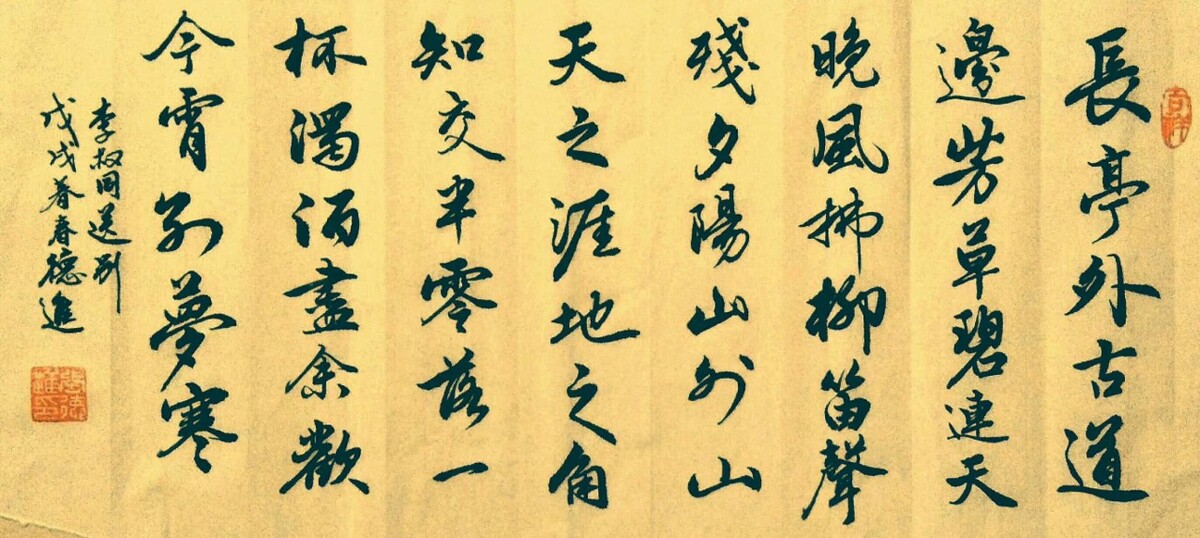 長亭外古道
邊芳草碧連天
晚風拂柳笛聲
殘夕陽山外山
天之涯地之角
知交半零落一
杯濁酒盡余歡
今宵别夢寒
李叔同送别
戊戌暮春德進